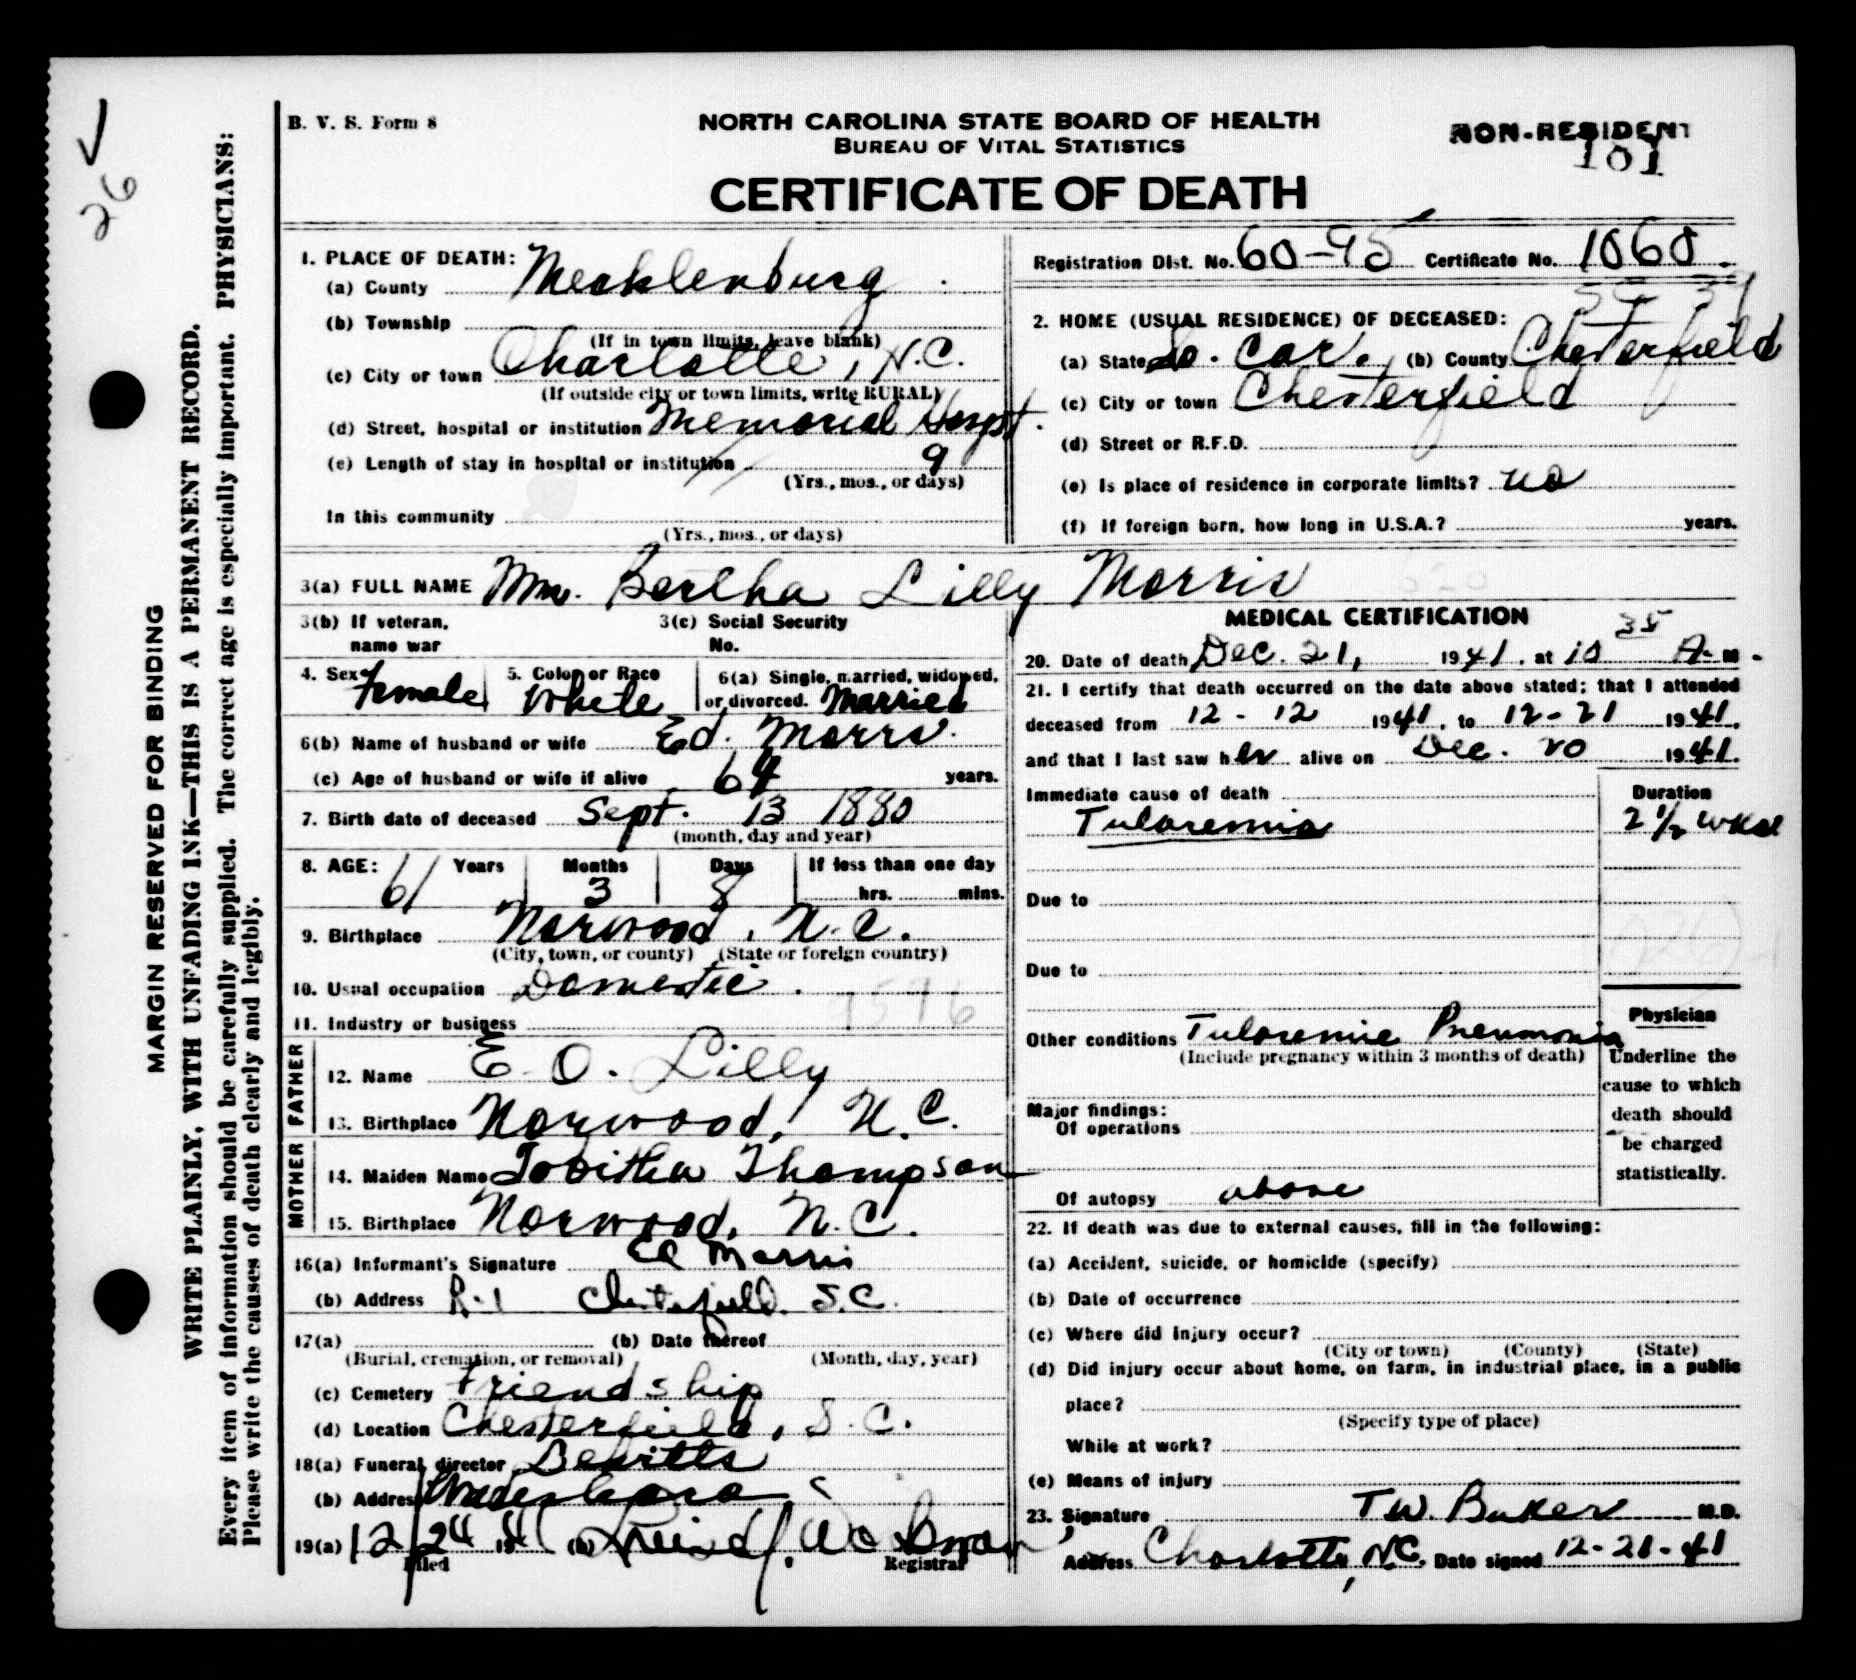 B. V. S. Form 8
NORTH CAROLINA STATE BOARD OF HEALTH
BUREAU OF VITAL STATISTICS
CERTIFICATE OF DEATH
NON-RESIDENT
101
26
MARGIN RESERVED FOR BINDING
WRITE PLAINLY, WITH UNFADING INK—THIS IS A PERMANENT RECORD.
Every item of information should be carefully supplied. The correct age is especially important. PHYSICIANS:
Please write the causes of death clearly and legibly.
1. PLACE OF DEATH:
(a) County Mecklenburg
(b) Township
(If in town limits, leave blank)
(c) City or town Charlotte, N.C.
(If outside city or town limits, write RURAL)
(d) Street, hospital or institution Memorial Hospt.
(e) Length of stay in hospital or institution 9
(Yrs., mos., or days)
In this community
(Yrs., mos., or days)
Registration Dist. No. 60-95 Certificate No. 1060
2. HOME (USUAL RESIDENCE) OF DECEASED:
(a) State So. Car. (b) County Chesterfield
(c) City or town Chesterfield
(d) Street or R.F.D.
(e) Is place of residence in corporate limits? no
(f) If foreign born, how long in U.S.A.? years.
3(a) FULL NAME Mrs. Bertha Lilly Morris
3(b) If veteran, name war
3(c) Social Security No.
4. Sex Female
5. Color or Race White
6(a) Single, married, widowed, or divorced. Married
6(b) Name of husband or wife Ed. Morris
(c) Age of husband or wife if alive 64 years.
7. Birth date of deceased Sept. 13 1880
(month, day and year)
8. AGE: 61 Years 3 Months 8 Days If less than one day
hrs. mins.
9. Birthplace Norwood, N.C.
(City, town, or county) (State or foreign country)
10. Usual occupation Domestic
11. Industry or business
FATHER
12. Name E. O. Lilly
13. Birthplace Norwood, N.C.
MOTHER
14. Maiden Name Tobitha Thompson
15. Birthplace Norwood, N.C.
16(a) Informant's Signature Ed Morris
(b) Address R-1 Chesterfield S.C.
17(a) (b) Date thereof
(Burial, cremation, or removal) (Month, day, year)
(c) Cemetery Friendship
(d) Location Chesterfield, S.C.
18(a) Funeral director
(b) Address Wadesboro
19(a) 12/24 1941 (b)
Filed Registrar
MEDICAL CERTIFICATION
20. Date of death Dec. 21, 1941, at 10 35 A. M.
21. I certify that death occurred on the date above stated; that I attended
deceased from 12-12 1941, to 12-21 1941,
and that I last saw her alive on Dec. 20 1941.
Immediate cause of death Duration
Tularemia 2 1/2 wks
Due to
Due to
Other conditions Tularemic Pneumonia
(Include pregnancy within 3 months of death)
Physician
Underline the
cause to which
death should
be charged
statistically.
Major findings:
Of operations
Of autopsy above
22. If death was due to external causes, fill in the following:
(a) Accident, suicide, or homicide (specify)
(b) Date of occurrence
(c) Where did injury occur?
(City or town) (County) (State)
(d) Did injury occur about home, on farm, in industrial place, in a public
place?
(Specify type of place)
While at work?
(e) Means of injury
23. Signature T.W. Baker M.D.
Address Charlotte, N.C. Date signed 12-21-41